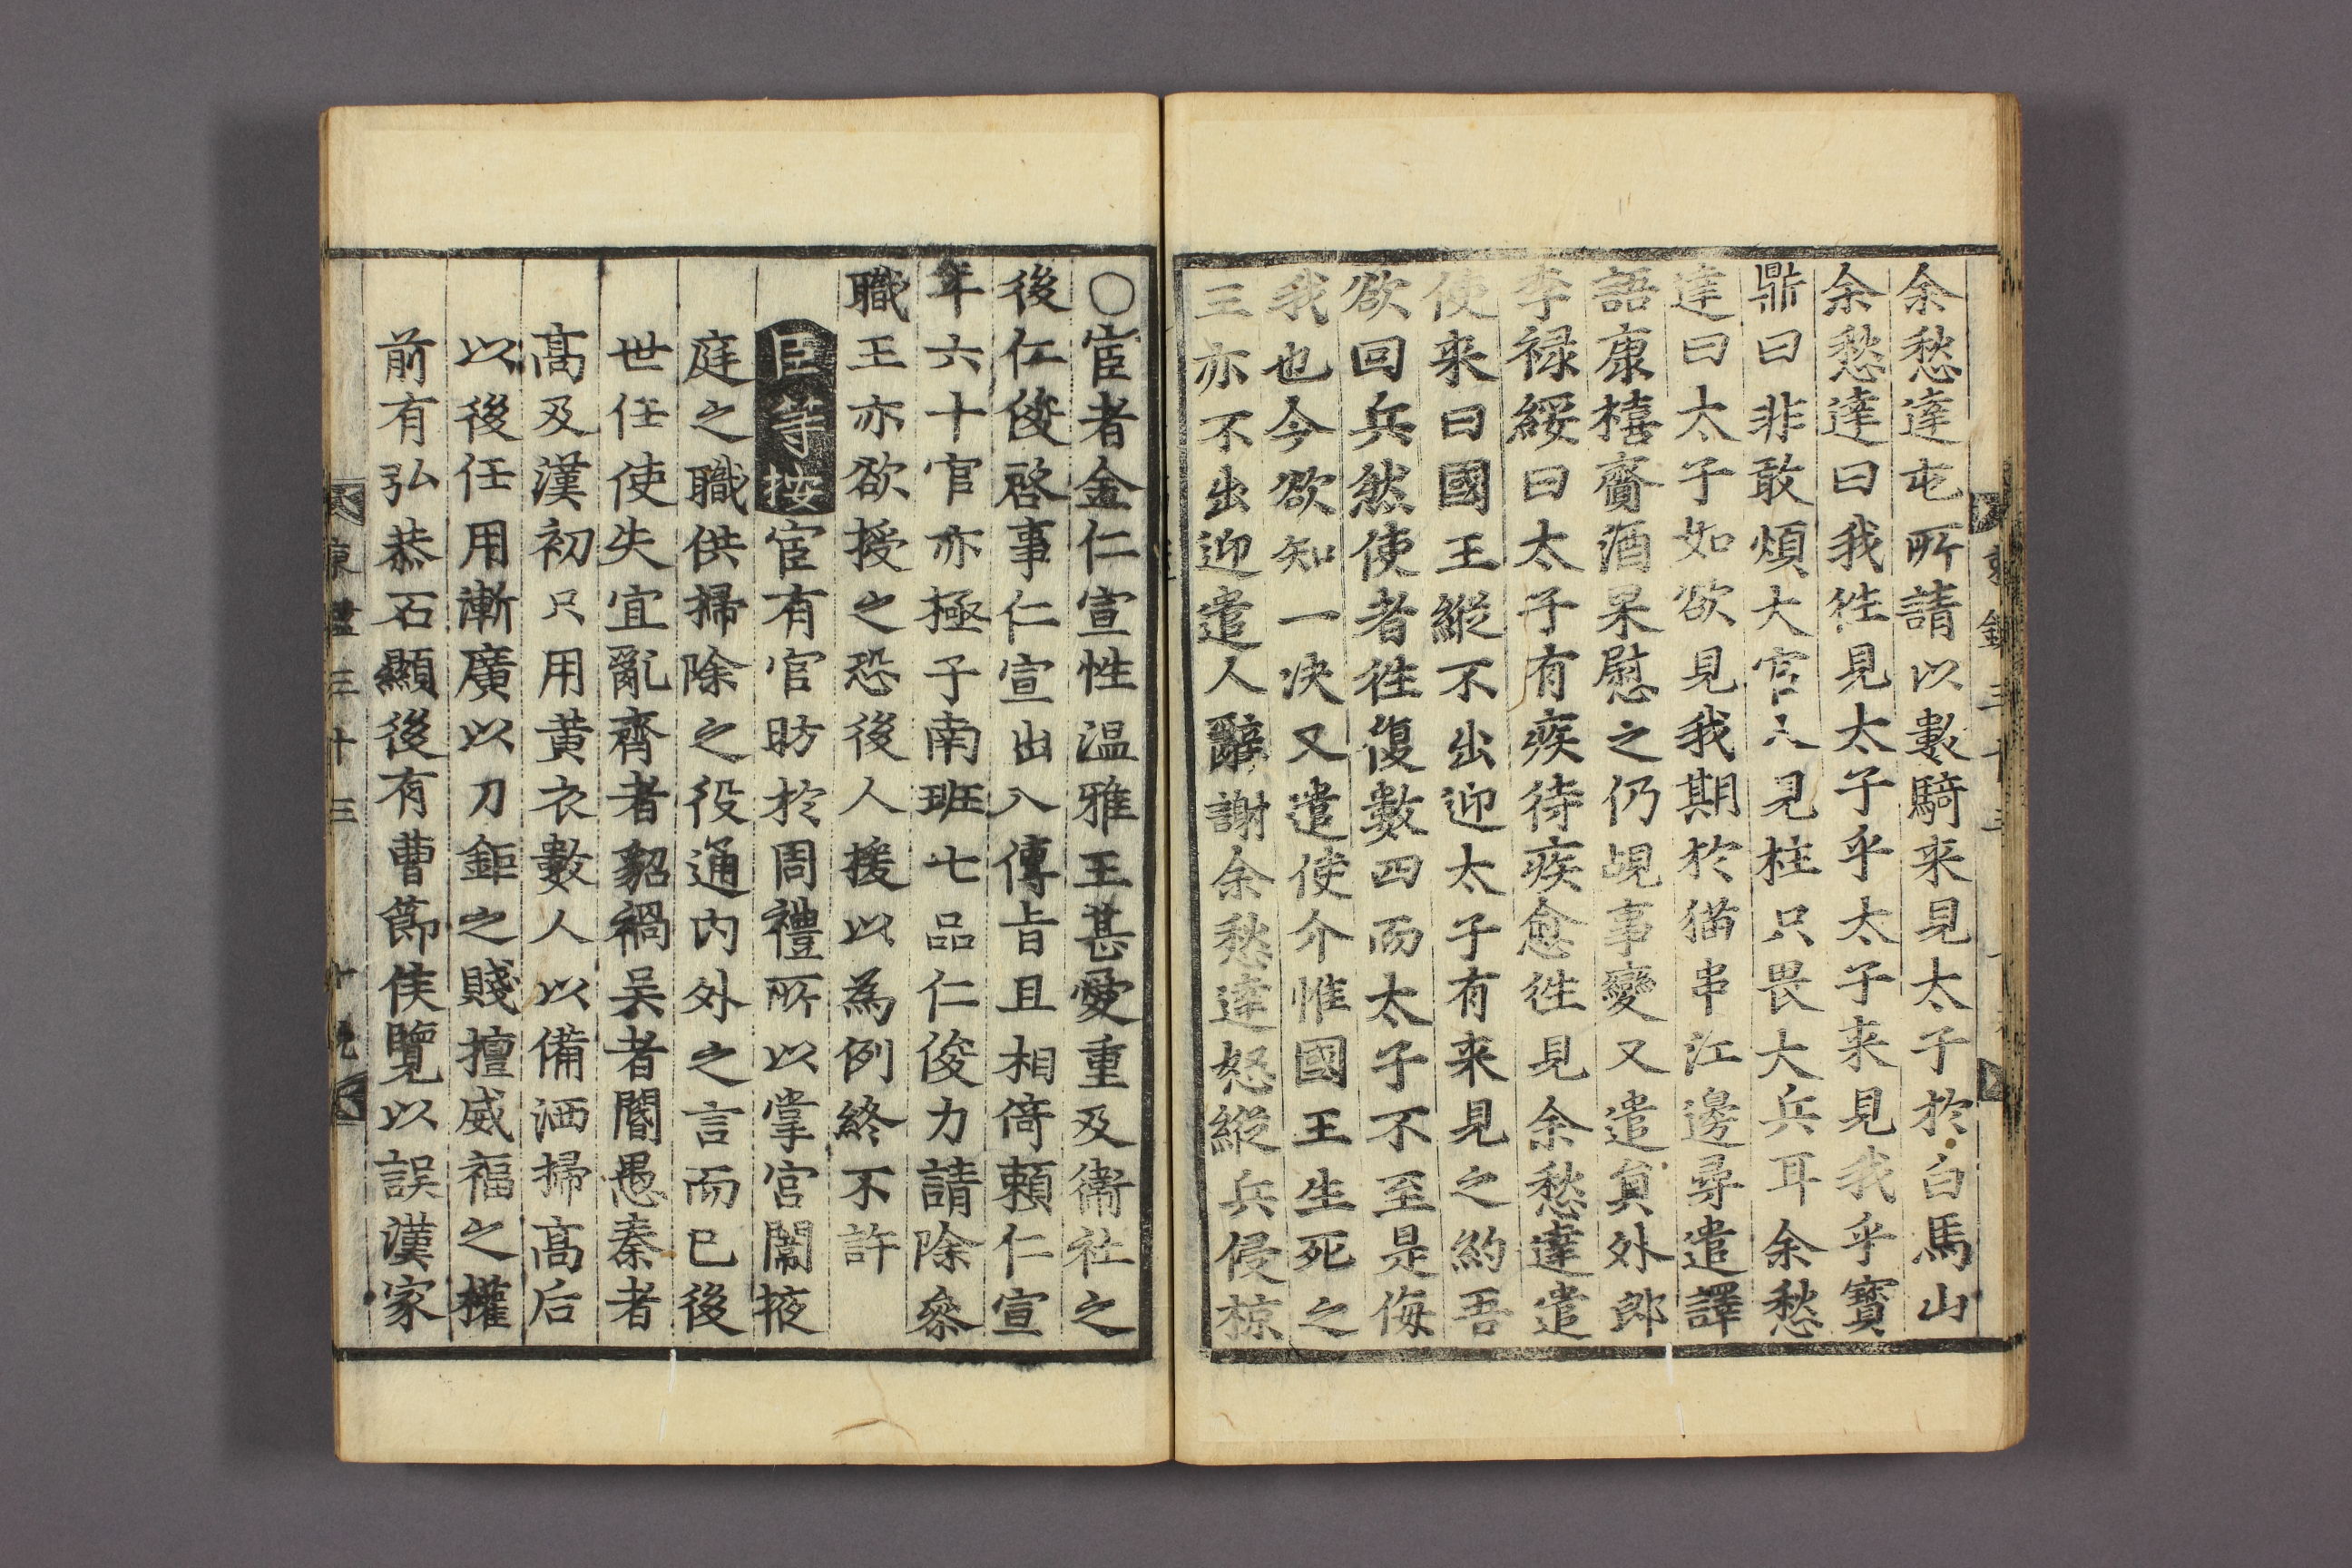 余愁達屯所請以數騎来見太子於白馬山
余愁達曰我徃見太子乎太子来見我乎寶
鼎曰非敢煩大官人見柱只畏大兵耳余愁
達曰太子如欲見我期於猫串江邊尋遣譯
語康禧齎酒果慰之仍覘事變又遣貟外郎
李禄綏曰太子有疾待疾愈徃見余愁達遣
使来曰國王縱不出迎太子有来見之約吾
欲回兵然使者徃復數四而太子不至是侮
我也今欲知一决又遣使介惟國王生死之
三亦不出迎遣人辭謝余愁達怒縱兵侵掠
〇宦者金仁宣性温雅王甚愛重及衛社之
後仁俊啓事仁宣出入傳旨且相倚頼仁宣
年六十官亦極于南班七品仁俊力請除叅
職王亦欲授之恐後人援以為例終不許
臣等按宦有官昉於周禮所以掌宫闈掖
庭之職供掃除之役通内外之言而已後
世任使失宜亂齊者貂禍吴者閽愚秦者
髙及漢初只用黄衣數人以備洒掃髙后
以後任用漸廣以刀鉅之賤擅威福之權
前有弘恭石顯後有曹節侯覽以誤漢家
東鑑三十三